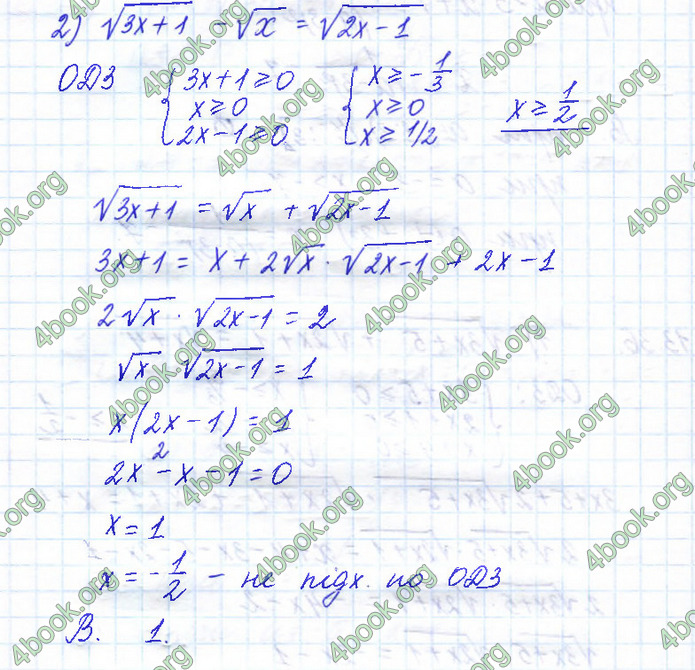 2) √(3x+1) - √x = √(2x-1)
ОДЗ { 3x+1 ≥ 0 { x ≥ -1/3
x ≥ 0 x ≥ 0 x ≥ 1/2
2x-1 ≥ 0 x ≥ 1/2
√(3x+1) = √x + √(2x-1)
3x+1 = x + 2√x · √(2x-1) + 2x - 1
2√x · √(2x-1) = 2
√x · √(2x-1) = 1
x(2x-1) = 1
2x² - x - 1 = 0
x = 1
x = -1/2 - не підх. по ОДЗ
В. 1.
4book.org